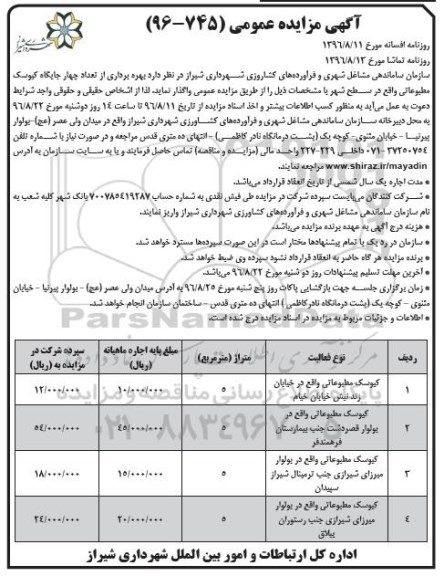 آگهی مزایده عمومی (۷۴۵-۹۶)
روزنامه افسانه مورخ ۱۳۹۶/۸/۱۱
روزنامه تماشا مورخ ۱۳۹۶/۸/۱۳
سازمان ساماندهی مشاغل شهری و فرآورده‌های کشاورزی شهرداری شیراز در نظر دارد بهره برداری از تعداد چهار جایگاه کیوسک
مطبوعاتی واقع در سطح شهر با مشخصات ذیل را از طریق مزایده عمومی واگذار نماید. لذا از اشخاص حقیقی و حقوقی واجد شرایط
دعوت به عمل می‌آید به منظور کسب اطلاعات بیشتر و اخذ اسناد مزایده از تاریخ ۹۶/۸/۱۱ تا ساعت ۱۴ روز دوشنبه مورخ ۹۶/۸/۲۲
به محل دبیرخانه سازمان ساماندهی مشاغل شهری و فرآورده‌های کشاورزی شهرداری شیراز واقع در میدان ولی عصر (عج)-بولوار
پیرنیا - خیابان مثنوی- کوچه یک (پشت درمانگاه نادر کاظمی) -انتهای ده متری قدس مراجعه و در صورت نیاز با شماره تلفن
۳۷۲۵۰۷۵۴-۰۷۱ داخلی ۲۲۹-۲۲۷ واحد مالی (مزایده و مناقصه) تماس حاصل فرمایند و یا به سایت سازمان به آدرس
www.shiraz.ir/mayadin مراجعه نمایند.
* مدت اجاره یک سال شمسی از تاریخ انعقاد قرارداد می‌باشد.
* شرکت کنندگان می‌بایست سپرده شرکت در مزایده طی فیش نقدی به شماره حساب ۷۰۰۷۸۵۴۱۹۲۸۷ بانک شهر کلیه شعب به
نام سازمان ساماندهی مشاغل شهری و فرآورده‌های کشاورزی شهرداری شیراز واریز نمایند.
* هزینه درج آگهی به عهده برنده مزایده می‌باشد.
* سازمان در رد یک یا تمام پیشنهادها مختار است در این صورت سپرده‌ها مسترد خواهد شد.
* برنده مزایده هر گاه حاضر به انعقاد قرارداد نشود سپرده وی ضبط خواهد شد.
* آخرین مهلت تسلیم پیشنهادات روز دو شنبه مورخ ۹۶/۸/۲۲ می‌باشد.
* زمان برگزاری جلسه جهت بازگشایی پاکات روز پنج شنبه مورخ ۹۶/۸/۲۵ به آدرس میدان ولی عصر (عج) - بولوار پیرنیا - خیابان
مثنوی - کوچه یک (پشت درمانگاه نادرکاظمی) انتهای ده متری قدس - ساختمان سازمان انجام خواهد شد.
* اطلاعات و جزئیات مربوط به مزایده در اسناد مزایده درج شده است.
ردیف | نوع فعالیت | متراژ (مترمربع) | مبلغ پایه اجاره ماهیانه (ریال) | سپرده شرکت در مزایده به (ریال)
۱ | کیوسک مطبوعاتی واقع در خیابان زند نبش خیابان خیام | ۵ | ۱۰/۰۰۰/۰۰۰ | ۱۲/۰۰۰/۰۰۰
۲ | کیوسک مطبوعاتی واقع در بولوار قصردشت جنب بیمارستان فرهمندفر | ۵ | ۴۵/۰۰۰/۰۰۰ | ۵۴/۰۰۰/۰۰۰
۳ | کیوسک مطبوعاتی واقع در بولوار میرزای شیرازی جنب ترمینال شیراز سپیدان | ۵ | ۱۵/۰۰۰/۰۰۰ | ۱۸/۰۰۰/۰۰۰
۴ | کیوسک مطبوعاتی واقع در بولوار میرزای شیرازی جنب رستوران ییلاق | ۵ | ۲۰/۰۰۰/۰۰۰ | ۲۴/۰۰۰/۰۰۰
اداره کل ارتباطات و امور بین الملل شهرداری شیراز